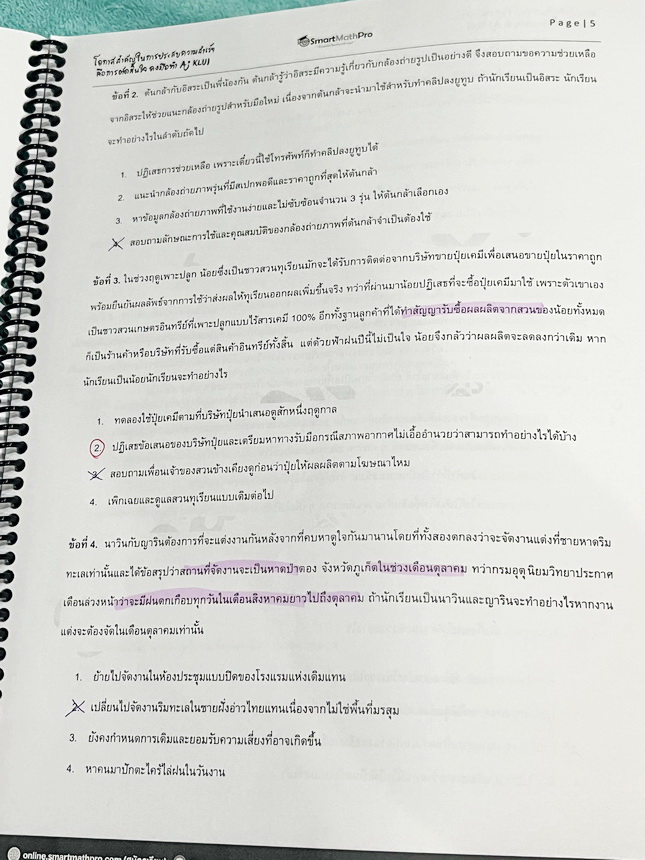 Page | 5
SmartMathPro
โอกาสสำคัญในการประสบความสำเร็จ
คือการตัดสินใจ ลงมือทำ AJ KLUI
ข้อที่ 2. ต้นกล้ากับอิสระเป็นพี่น้องกัน ต้นกล้ารู้ว่าอิสระมีความรู้เกี่ยวกับกล้องถ่ายรูปเป็นอย่างดี จึงสอบถามขอความช่วยเหลือ
จากอิสระให้ช่วยแนะกล้องถ่ายรูปสำหรับมือใหม่ เนื่องจากต้นกล้าจะนำมาใช้สำหรับทำคลิปลงยูทูบ ถ้านักเรียนเป็นอิสระ นักเรียน
จะทำอย่างไรในลำดับถัดไป
1. ปฏิเสธการช่วยเหลือ เพราะเดี๋ยวนี้ใช้โทรศัพท์ก็ทำคลิปลงยูทูบได้
2. แนะนำกล้องถ่ายภาพรุ่นที่มีสเปกพอดีและราคาถูกที่สุดให้ต้นกล้า
3. หาข้อมูลกล้องถ่ายภาพที่ใช้งานง่ายและไม่ซับซ้อนจำนวน 3 รุ่น ให้ต้นกล้าเลือกเอง
4. สอบถามลักษณะการใช้และคุณสมบัติของกล้องถ่ายภาพที่ต้นกล้าจำเป็นต้องใช้
ข้อที่ 3. ในช่วงฤดูเพาะปลูก น้อยซึ่งเป็นชาวสวนทุเรียนมักจะได้รับการติดต่อจากบริษัทขายปุ๋ยเคมีเพื่อเสนอขายปุ๋ยในราคาถูก
พร้อมยืนยันผลลัพธ์จากการใช้ว่าส่งผลให้ทุเรียนออกผลเพิ่มขึ้นจริง ทว่าที่ผ่านมาน้อยปฏิเสธที่จะซื้อปุ๋ยเคมีมาใช้ เพราะตัวเขาเอง
เป็นชาวสวนเกษตรอินทรีย์ที่เพาะปลูกแบบไร้สารเคมี 100% อีกทั้งฐานลูกค้าที่ได้ทำสัญญารับซื้อผลผลิตจากสวนของน้อยทั้งหมด
ก็เป็นร้านค้าหรือบริษัทที่รับซื้อแต่สินค้าอินทรีย์ทั้งสิ้น แต่ด้วยฟ้าฝนปีนี้ไม่เป็นใจ น้อยจึงกลัวว่าผลผลิตจะลดลงกว่าเดิม หาก
นักเรียนเป็นน้อยนักเรียนจะทำอย่างไร
1. ทดลองใช้ปุ๋ยเคมีตามที่บริษัทปุ๋ยนำเสนอดูสักหนึ่งฤดูกาล
2. ปฏิเสธข้อเสนอของบริษัทปุ๋ยและเตรียมหาทางรับมือกรณีสภาพอากาศไม่เอื้ออำนวยว่าสามารถทำอย่างไรได้บ้าง
3. สอบถามเพื่อนเจ้าของสวนข้างเคียงดูก่อนว่าปุ๋ยให้ผลผลิตตามโฆษณาไหม
4. เพิกเฉยและดูแลสวนทุเรียนแบบเดิมต่อไป
ข้อที่ 4. นาวินกับญารินต้องการที่จะแต่งงานกันหลังจากที่คบหาดูใจกันมานานโดยที่ทั้งสองตกลงว่าจะจัดงานแต่งที่ชายหาดริม
ทะเลเท่านั้นและได้ข้อสรุปว่าสถานที่จัดงานจะเป็นหาดป่าตอง จังหวัดภูเก็ตในช่วงเดือนตุลาคม ทว่ากรมอุตุนิยมวิทยาประกาศ
เตือนล่วงหน้าว่าจะมีฝนตกเกือบทุกวันในเดือนสิงหาคมยาวไปถึงตุลาคม ถ้านักเรียนเป็นนาวินและญารินจะทำอย่างไรหากงาน
แต่งจะต้องจัดในเดือนตุลาคมเท่านั้น
1. ย้ายไปจัดงานในห้องประชุมแบบปิดของโรงแรมแห่งเดิมแทน
2. เปลี่ยนไปจัดงานริมทะเลในชายฝั่งอ่าวไทยแทนเนื่องจากไม่ใช่พื้นที่มรสุม
3. ยังคงกำหนดการเดิมและยอมรับความเสี่ยงที่อาจเกิดขึ้น
4. หาคนมาปักตะไคร้ไล่ฝนในวันงาน
online.smartmathpro.com